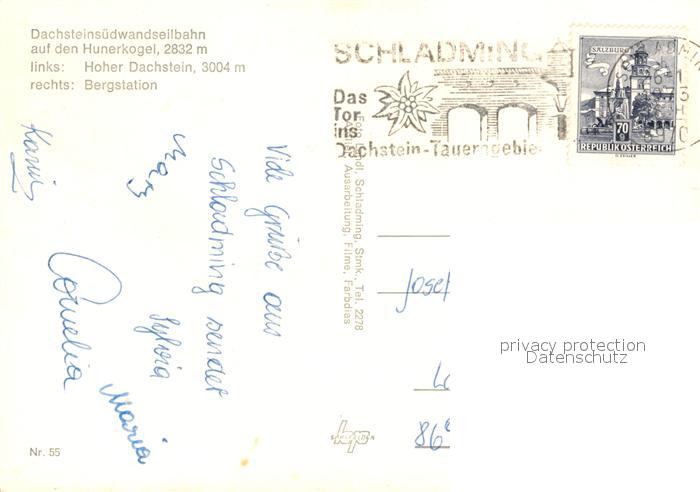 Dachsteinsüdwandseilbahn
auf den Hunerkogel, 2832 m
links: Hoher Dachstein, 3004 m
rechts: Bergstation
SCHLADMING
Das
Tor
ins
Dachstein-Tauerngebie
SALZBURG
70
REPUBLIK ÖSTERREICH
Viele Grüße aus
Schladming sendet
Sylvia
Maria
Cornelia
Karin
Schladming, Stmk., Tel. 2278
Ausarbeitung, Filme, Farbdias
Josef
86
privacy protection
Datenschutz
Nr. 55